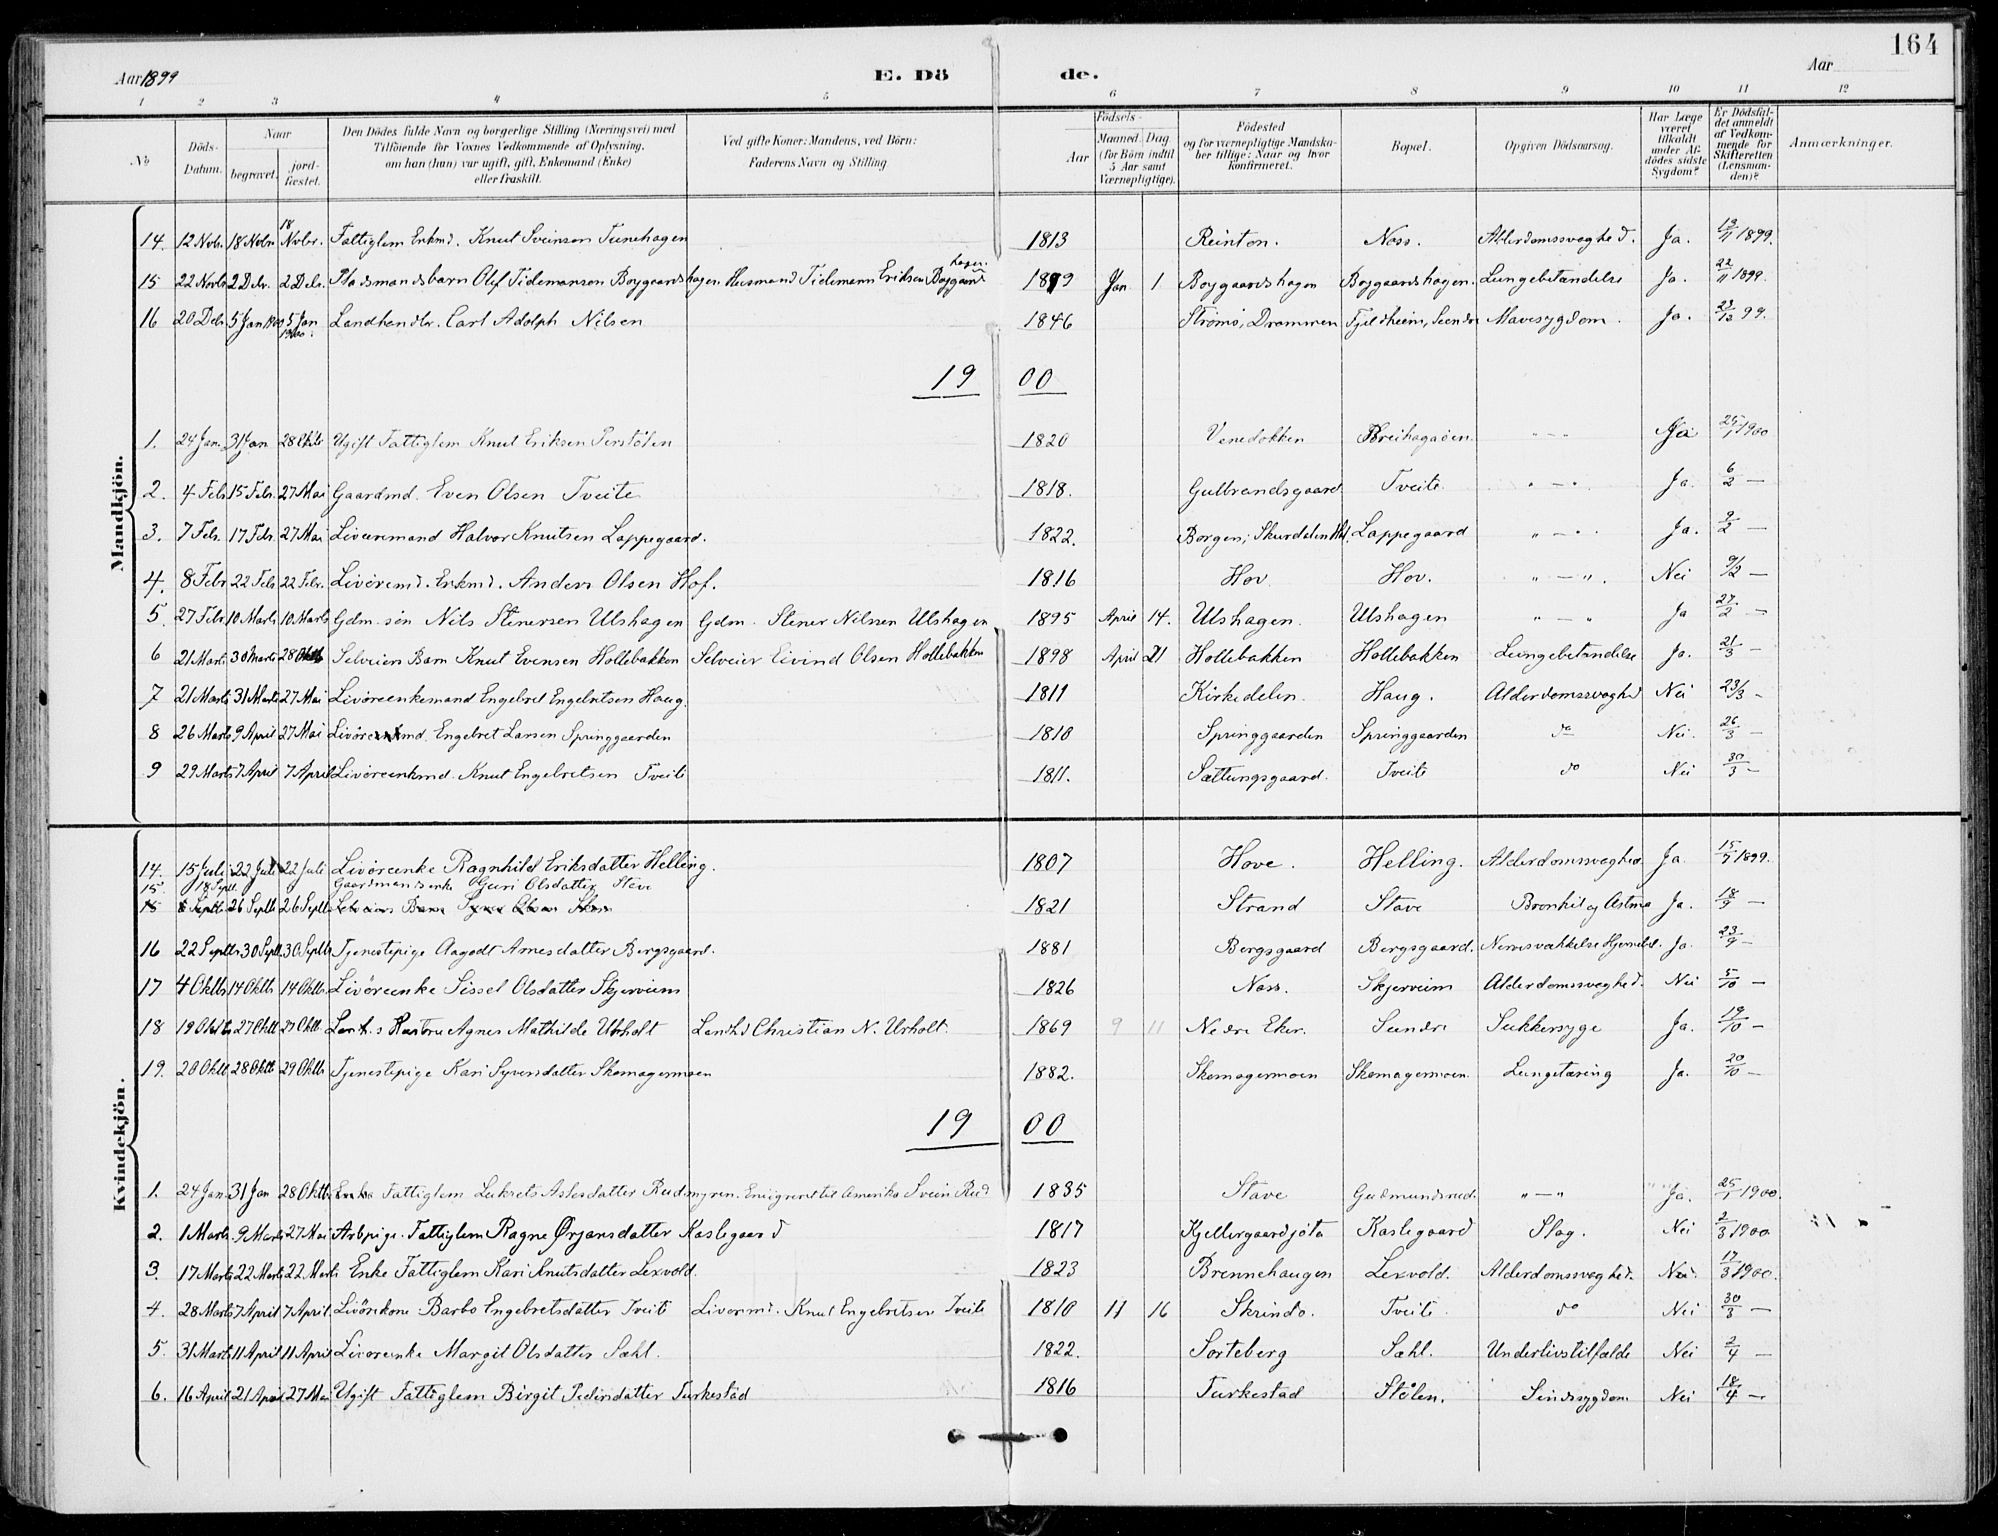 164
Aar 1899
E. Dö de.
Aar
1 2 3 4 5 6 7 8 9 10 11 12
No
Döds-Datum.
Naar
begravet.
jordfæstet.
Den Dödes fulde Navn og borgerlige Stilling (Næringsvei) med Tilföiende for Voxnes Vedkommende af Oplysning. om han (hun) var ugift, gift, Enkemand (Enke) eller fraskilt.
Ved gifte Koner: Mandens, ved Börn: Faderens Navn og Stilling
Födsels-
Aar
Maaned. Dag (for Börn indtil 5 Aar samt Værnepligtige).
Födested og for værnepligtige Mandskaber tillige: Naar og hvor konfirmeret.
Bopæl.
Opgiven Dödsaarsag.
Har Læge været tilkaldt under Afdödes sidste Sygdom?
Er Dödsfaldet anmeldt af Vedkommende for Skifteretten (Lensmanden)?
Anmærkninger.
Mandkjön.
14. 12 Novbr. 18 Novbr 18 Novbr. Fattiglem Enkmd. Knut Sveinsen Tunehagen 1813 Reinton. Næss. Alderdomssvaghed. Ja. 13/11 1899.
15 22 Novbr 2 Debr. 2 Debr. Pladsmandsbarn Olef Tidemansen Boygaardshagen Husmand Tidemann Eriksen Boygaardshagen 1899 Jan. 1 Boygaardshagen Boygaardshagen. Lungebetændelse Ja. 22/11 1899.
16 20 Debr. 5 Jan 1900 5 Jan 1900. Landhandlr. Carl Adolph Nilsen 1846 Strömsö, Drammen Fjeldheim, Sundre Mavesygdom. Ja. 23/12 99.
19 00
1. 24 Jan. 31 Jan 28 Oktb Ugift Fattiglem Knut Eriksen Perstölen 1820 Venebakken Breihagaöen. " — " Ja 25/1 1900
2. 4 Febr 15 Febr. 27 Mai Gaardmd. Even Olsen Tveite 1818. Gulbrandsgaard Tveite " — " Ja. 6/2 —
3. 7 Febr. 17 Febr. 27 Mai Livöremand Halvor Knutsen Lappegaard. 1822. Borgen, Skurdalen Hol. Lappegaard " — " Ja. 9/2 —
4. 8 Febr 22 Febr 22 Febr. Livöremd. Enkmd. Anders Olsen Hof. 1816 Hov. Hov. " — ". Nei 9/2 —
5. 27 Febr 10 Marts 10 Marts Gdm. sön Nils Stenersen Ulshagen Gdm. Stener Nilssen Ulshagen 1895 April 14. Ulshagen. Ulshagen " — " Ja 27/2 —
6 21 Marts 30 Marts 28 Oktb Selveier Barn Knut Evensen Hollebakken Selveier Eivind Olsen Hollebakken 1898 April 21 Hollebakken Hollebakken Lungebetændelse Ja. 21/3 —
7 21 Marts 31 Marts 27 Mai Livöreenkemand Engebret Engebretsen Haug. 1811 Kirkedelen. Haug. Alderdomssvaghed Nei 23/3 —
8 26 Marts 9 April 27 Mai Livöreenkmd. Engebret Larsen Springgaarden 1810 Springgaarden Springgaarden do Nei. 26/3 —
9 29 Marts 7 April 7 April Livöreenkmd. Knut Engebretsen Tveite 1811. Sættungsgaard. Tveite do Nei 30/3 —
Kvindekjön.
14. 15 Juli 22 Juli 22 Juli Livöreenke Ragnhild Eriksdatter Helling. 1807 Hove. Helling. Alderdomssvaghed Ja. 15/7 1899.
15. 18 Septb. Gaardmandsenke Guri Olsdatter Stave
15 26 Septb 26 Septb 1821 Strand Stave Bronkit og Astma Ja. 18/9 —
16 22 Septb. 30 Septb. 30 Septb. Tjenestepige Aagodt Arnesdatter Bergsgaard. 1881 Bergsgaard Bergsgaard. Nervesvækkelse Ja. 23/9 —
17 4 Oktb. 14 Oktb. 14 Oktb. Livöreenke Sissel Olsdatter Skjerveim 1826 Næss. Skjerveim Alderdomssvaghed. Nei 5/10 —
18 19 Oktb 27 Oktb 27 Oktb. Landh.s Hustru Agnes Mathilde Urholt Landhd Christian N. Urholt. 1869 9 11 Nedre Eker. Sundre Sukkersyge Ja. 19/10 —
19. 20 Oktb 28 Oktb 29 Oktb. Tjenestepige Kari Syversdatter Skomagermoen 1882. Skomagermoen Skomagermoen Lungetæring Ja. 20/10 —
19 00
1. 24 Jan. 31 Jan 28 Oktb. Enke Fattiglem Lukrets Aslesdatter Rudmyren. Emigreret til Amerika Svein Rud 1835 Stave Gudmundsrud. " — " Ja. 25/1 1900.
2. 1 Marts 9 Marts 27 Mai Arbpige. Fattiglem Ragne Ørjansdatter Kaslegaard 1817 Kjellergaardjota Kaslegaard Slag. Nei 2/3 1900
3. 17 Marts 22 Marts 22 Marts Enke Fattiglem Kari Knutsdatter Lexvold. 1823 Brennehaugen Lexvold. Alderdomssvaghed. Nei. 17/3 1900.
4. 28 Marts 7 April 7 April Livörekone Barbo Engebretsdatter Tveite Livörmd. Knut Engebretsen Tveite 1810 11 16 Skrindo. Tveite. do Nei 30/3 —
5. 31 Marts 11 April 11 April Livöreenke Margit Olsdatter Sæhl. 1822. Sorteberg Sæhl. Underlivstilfælde Nei 2/4 —
6. 16 April 21 April 27 Mai Ugift Fattiglem Birgit Pedersdatter Turkestad 1816 Turkestad Stölen. Sindssygdom Nei 18/4 —